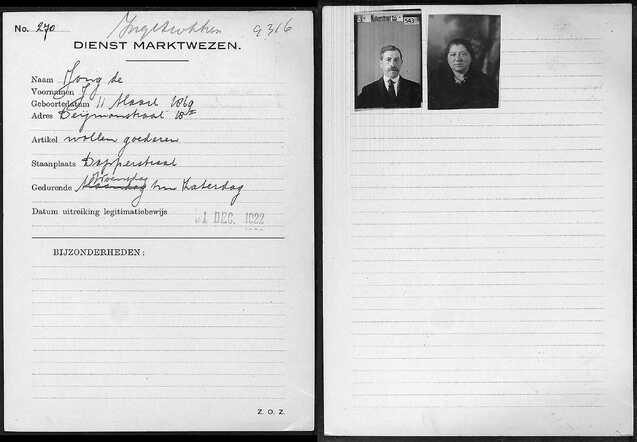 No. 270 Ingetrokken 9316
DIENST MARKTWEZEN.
Naam Jong de
Voornamen J
Geboortedatum 11 Maart 1869
Adres
Artikel wollen goederen
Staanplaats Dapperstraat
Woensdag
Gedurende Maandag t/m Zaterdag
Datum uitreiking legitimatiebewijs 1 DEC. 1922
BIJZONDERHEDEN:
Z. O. Z.
543